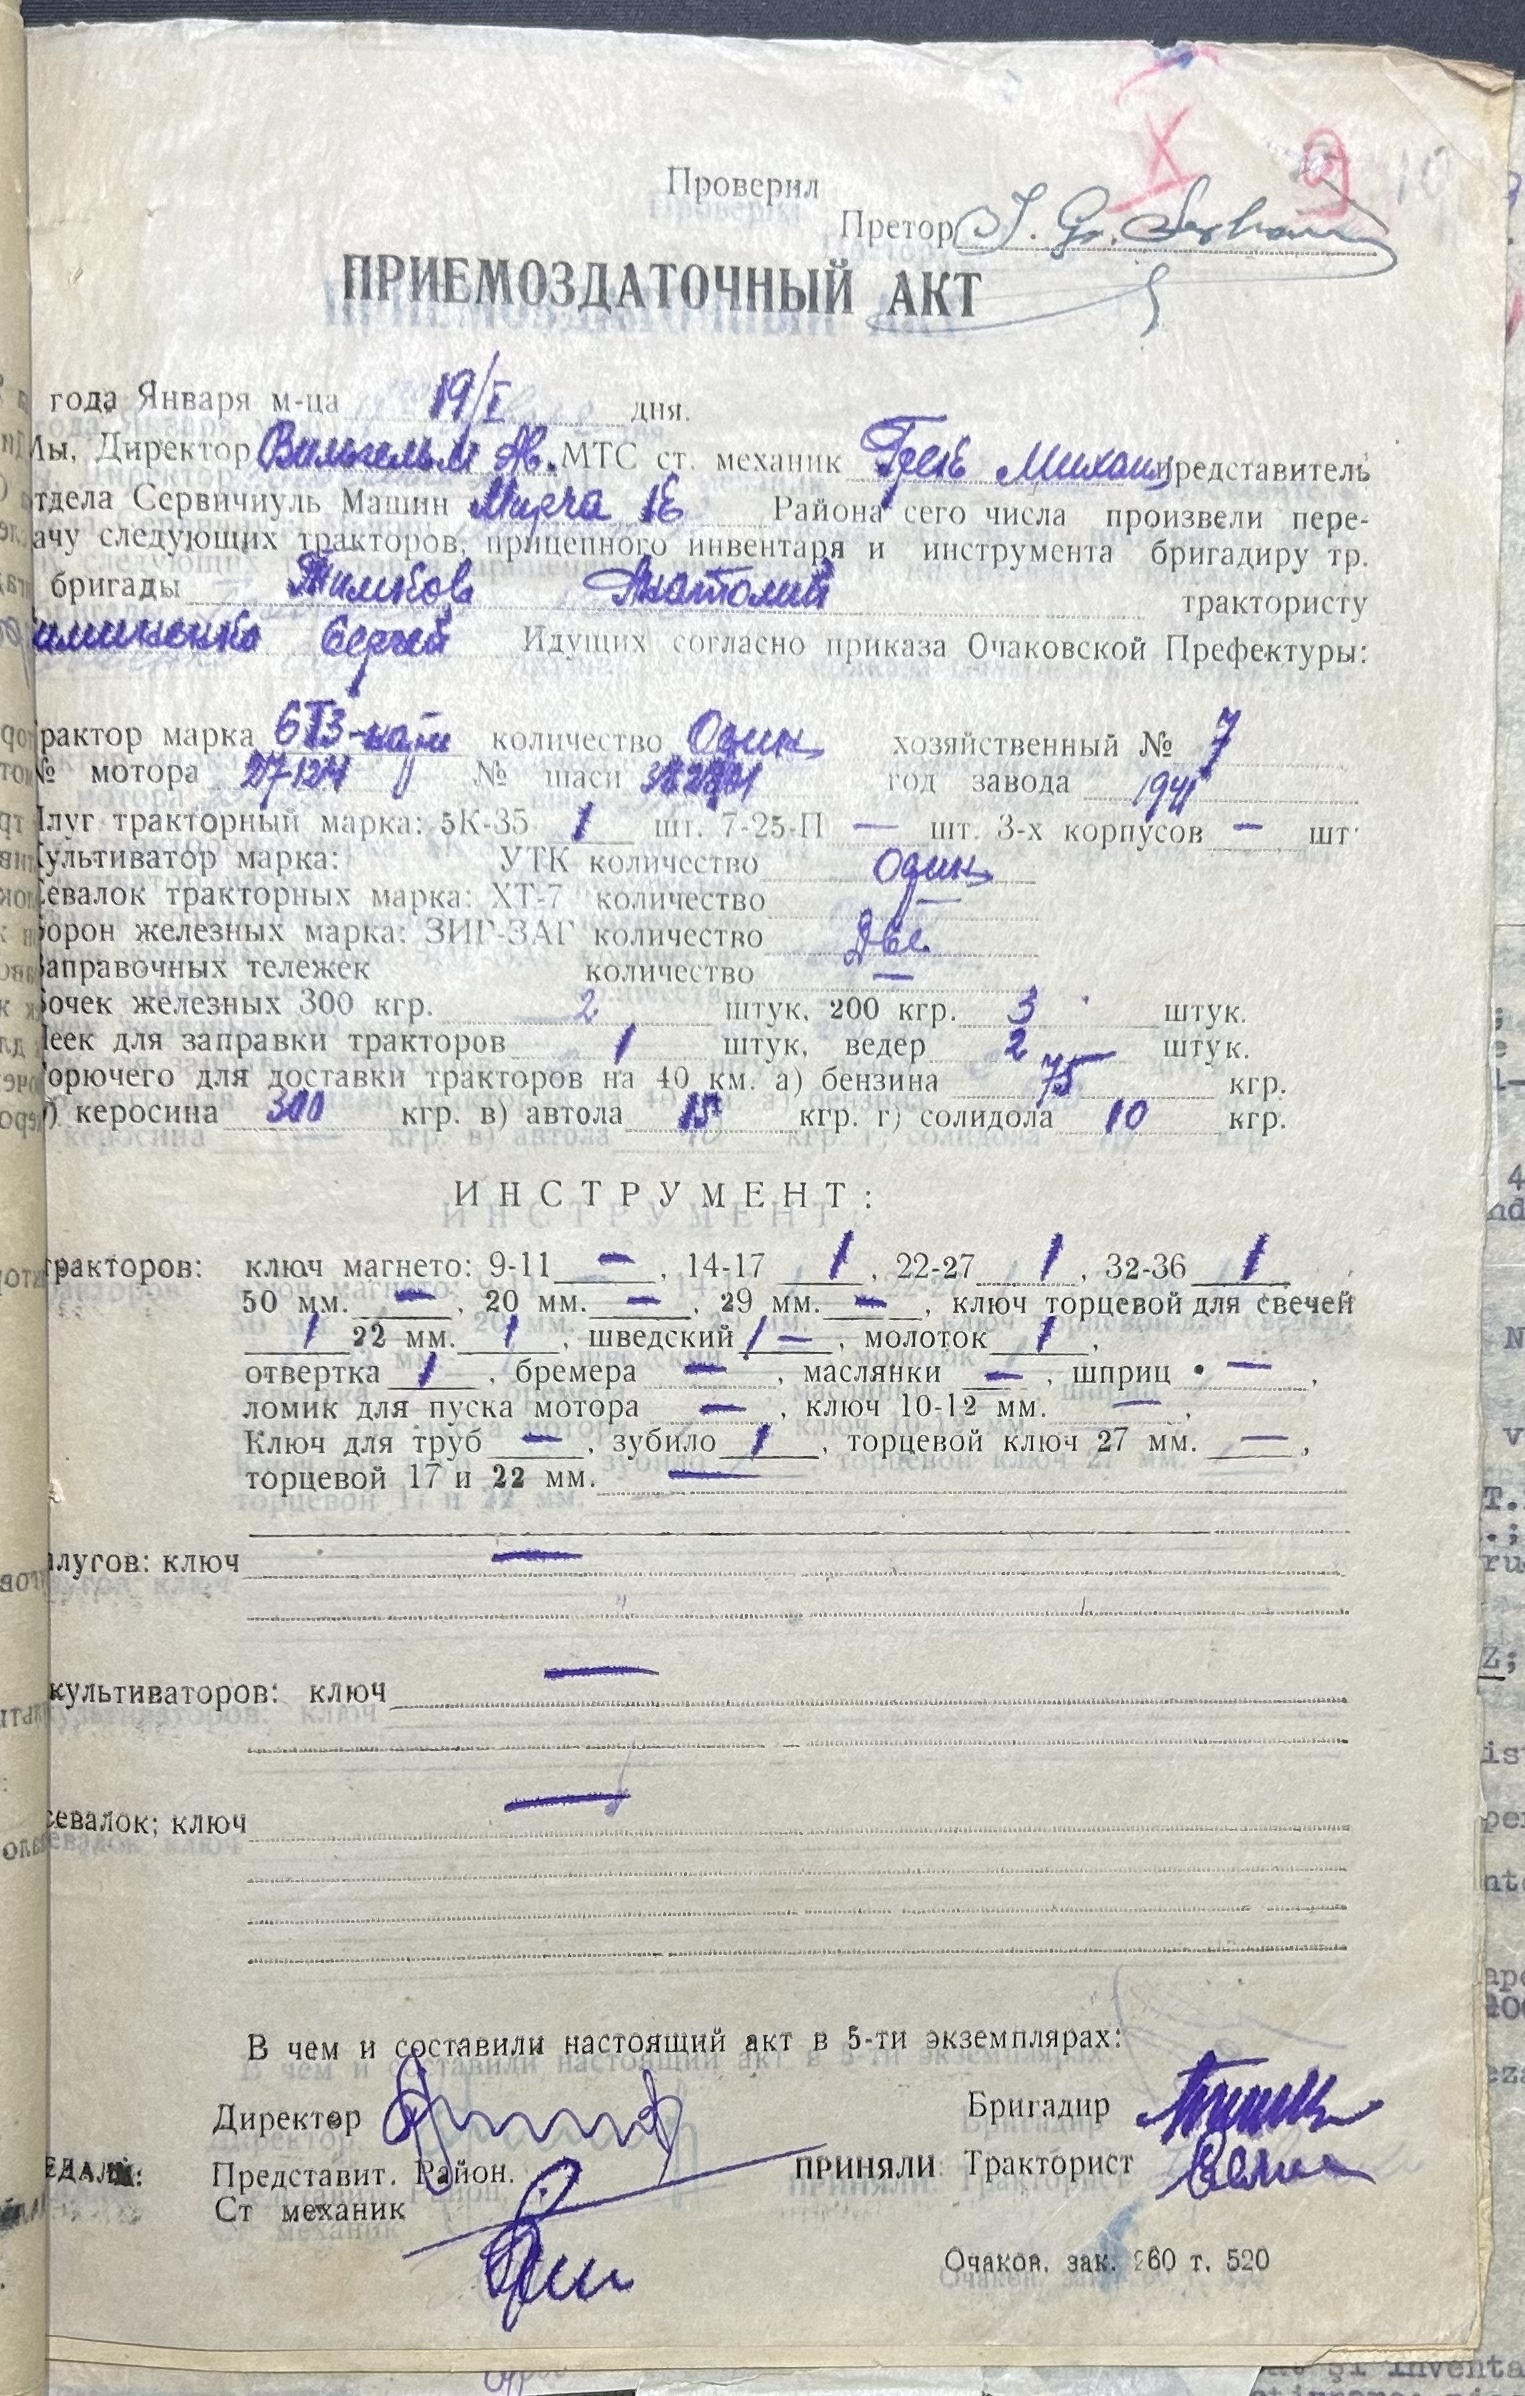 9 10
Проверил
Претор
ПРИЕМОЗДАТОЧНЫЙ АКТ
года Января м-ца 19/I дня.
Мы, Директор Вильгельм Ав. МТС ст. механик Грек Михаил представитель
тдела Сервичиуль Машин Района сего числа произвели пере-
ачу следующих тракторов, прицепного инвентаря и инструмента бригадиру тр.
бригады Анатолий трактористу
Сергей Идущих согласно приказа Очаковской Префектуры:
трактор марка количество Один хозяйственный № 7
№ мотора № шаси год завода 1941
Плуг тракторный марка: 5К-35 1 шт. 7-25-П — шт. 3-х корпусов — шт
Культиватор марка: УТК количество Один
Севалок тракторных марка: ХТ-7 количество —
Борон железных марка: ЗИГ-ЗАГ количество Две
Заправочных тележек количество —
Бочек железных 300 кгр. 2 штук, 200 кгр. 3 штук.
Леек для заправки тракторов 1 штук, ведер 2 штук.
Горючего для доставки тракторов на 40 км. а) бензина 75 кгр.
) керосина 300 кгр. в) автола 15 кгр. г) солидола 10 кгр.
ИНСТРУМЕНТ:
тракторов: ключ магнето: 9-11 — , 14-17 1 , 22-27 1 , 32-36 1
50 мм. — , 20 мм. — , 29 мм. — , ключ торцевой для свечей
1 22 мм. 1 , шведский 1 — , молоток 1 ,
отвертка 1 , бремера — , маслянки — , шприц • — ,
ломик для пуска мотора — , ключ 10-12 мм. — ,
Ключ для труб — , зубило 1 , торцевой ключ 27 мм. — ,
торцевой 17 и 22 мм. —
плугов: ключ —
культиваторов: ключ —
севалок; ключ —
В чем и составили настоящий акт в 5-ти экземплярах:
Директор Бригадир
ЕДАЛИ: Представит. Район. ПРИНЯЛИ Тракторист
Ст механик
Очаков, зак. 260 т. 520